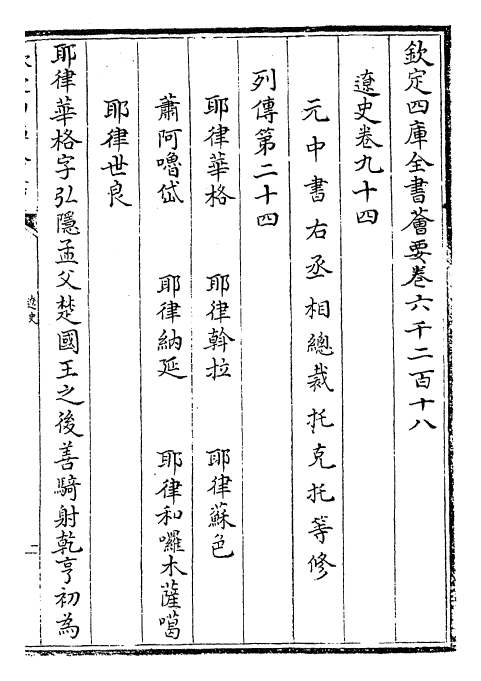 欽定四庫全書薈要卷六千二百十八
遼史卷九十四
元中書右丞相總裁托克托等修
列傳第二十四
耶律華格 耶律斡拉 耶律蘇色
蕭阿嚕岱 耶律納延 耶律和囉木薩噶
耶律世良
耶律華格字弘隱孟父楚國王之後善騎射乾亨初為
遼史